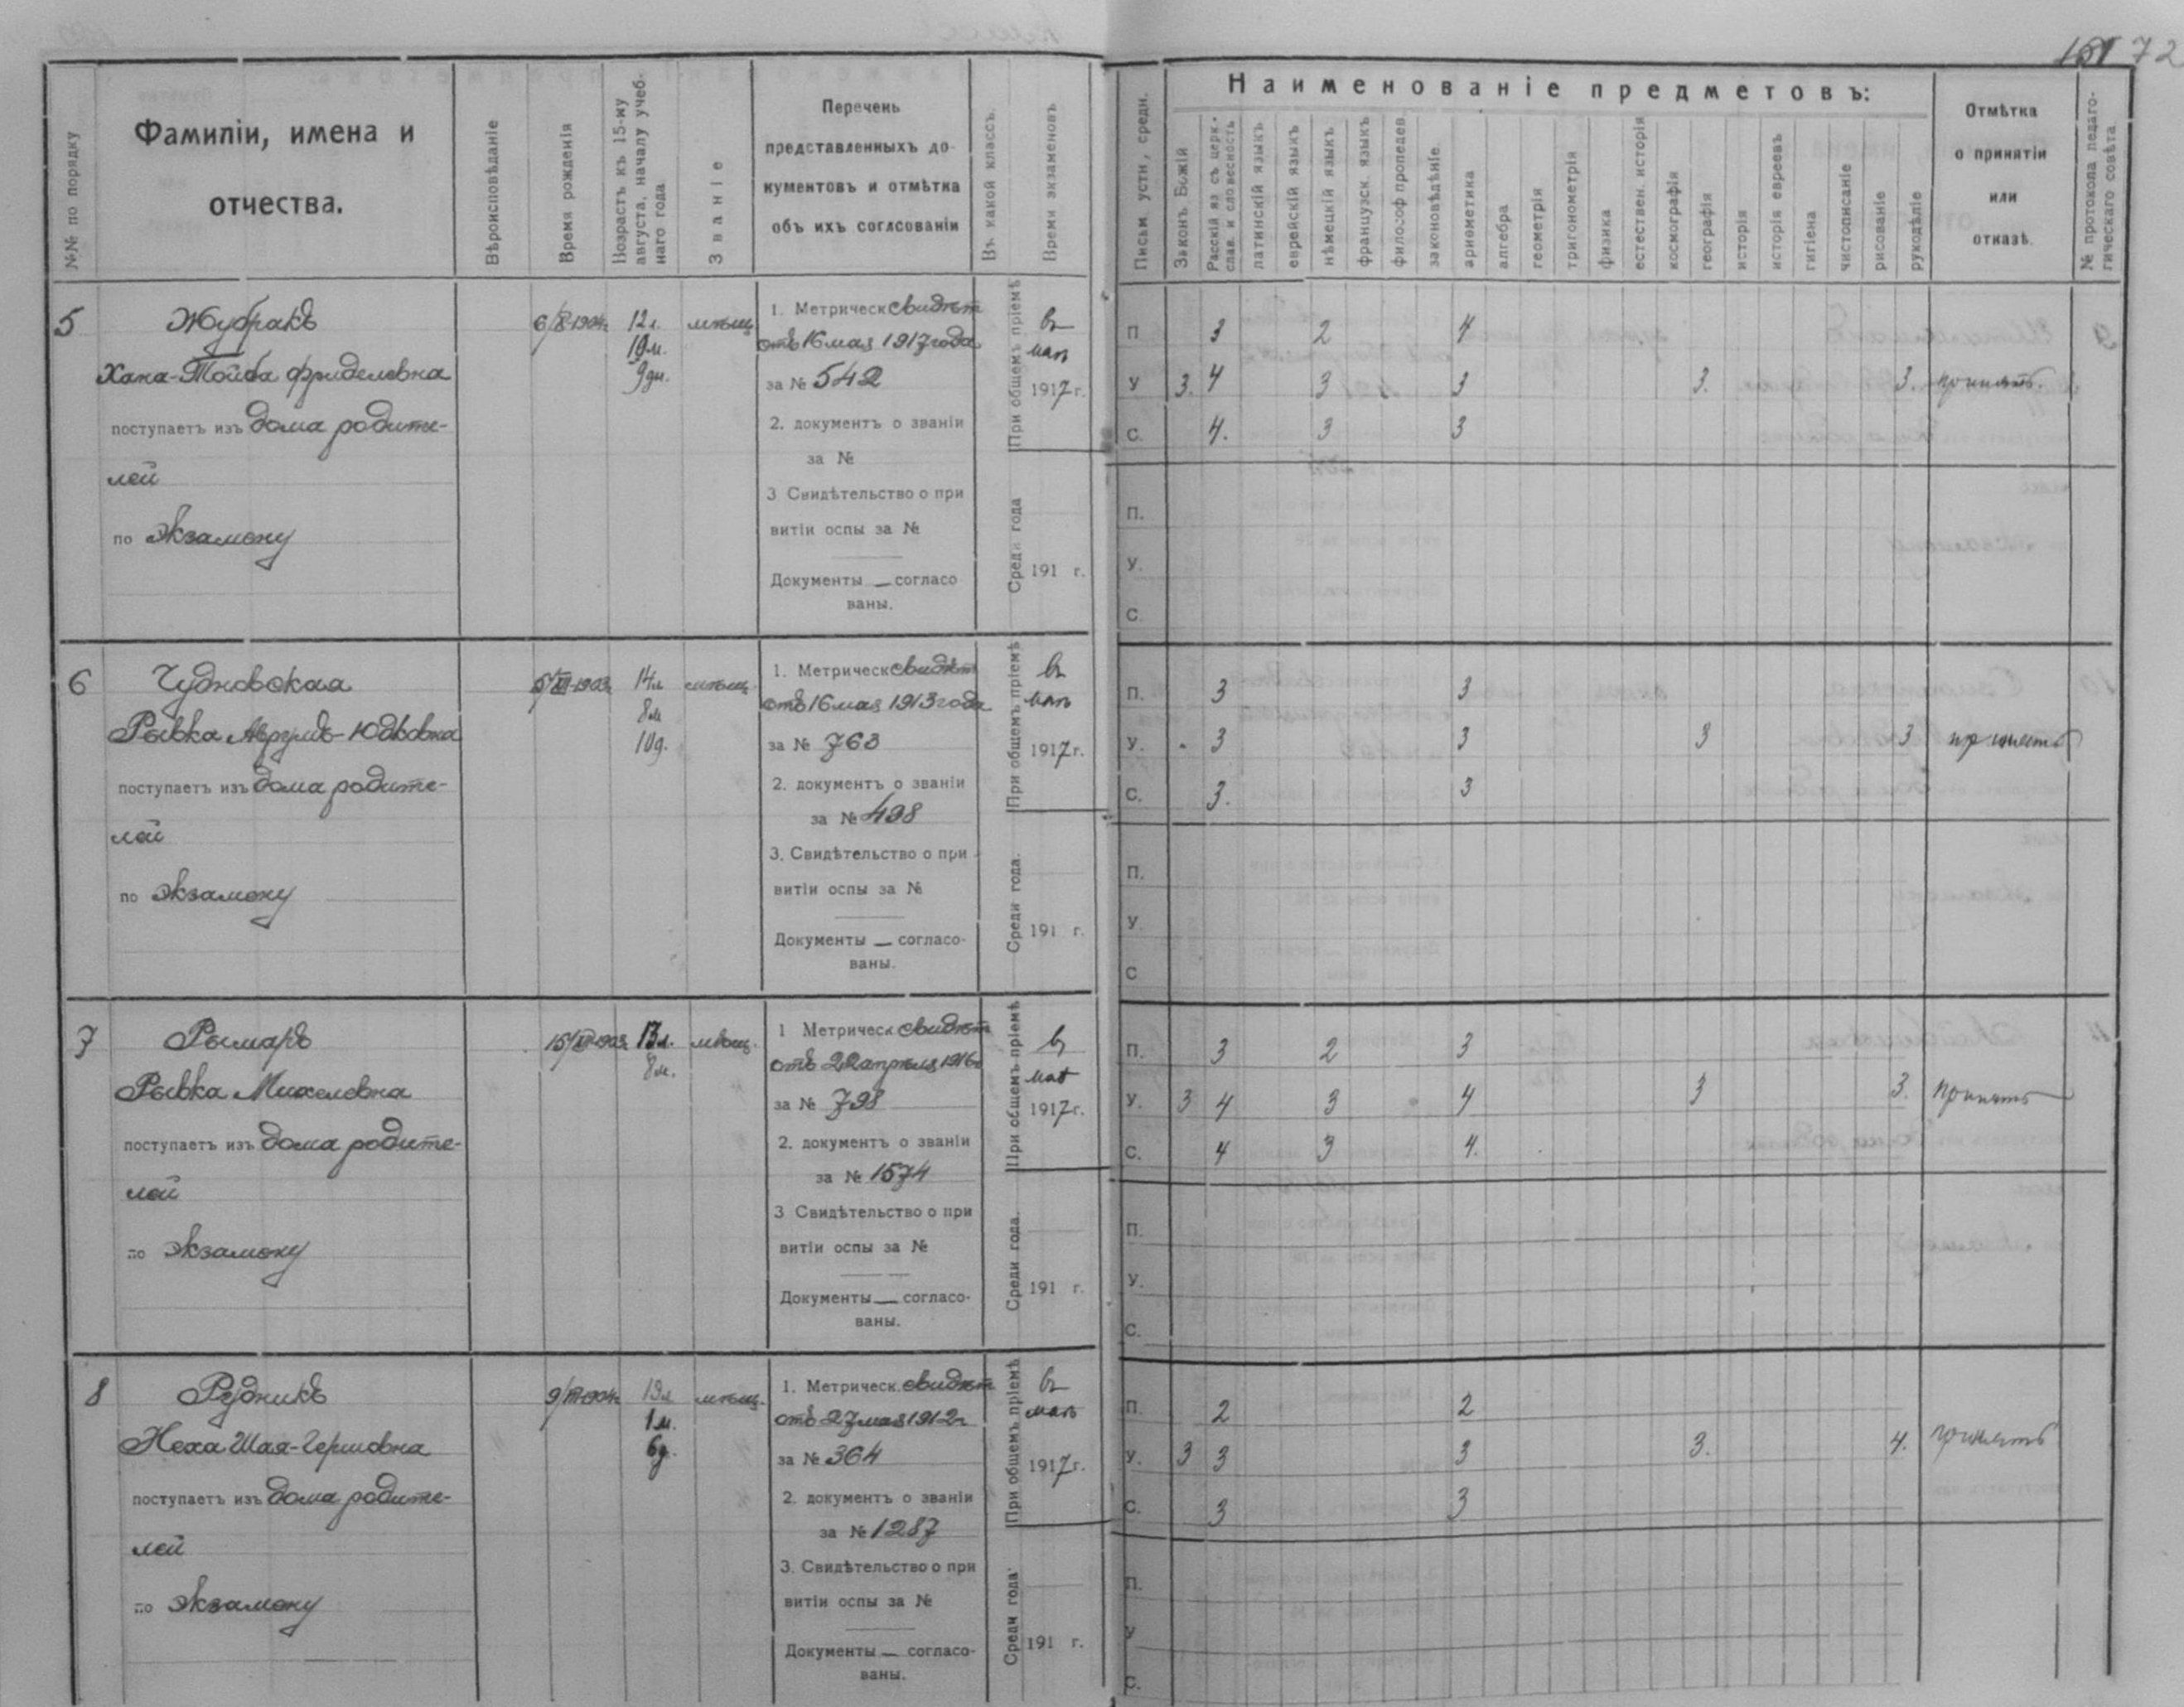 151 72
№№ по порядку
Фамиліи, имена и
отчества.
Вѣроисповѣданіе
Время рожденія
Возрастъ къ 15-му
августа, началу учеб-
наго года
Званіе
Перечень
представленныхъ до-
кументовъ и отмѣтка
объ ихъ согласованіи
Въ какой классъ.
Время экзаменовъ
Письм. устн, средн.
Наименованіе предметовъ:
Законъ Божій
Русскій яз съ церк.-
слав. и словесность
латинскій языкъ
еврейскій языкъ
нѣмецкій языкъ
французск. языкъ
философ пропедев
законовѣдѣніе
ариѳметика
алгебра
геометрія
тригонометрія
физика
естествен. исторія
космографія
географія
исторія
исторія евреевъ
гигіена
чистописаніе
рисованіе
рукодѣліе
Отмѣтка
о принятіи
или
отказѣ.
№ протокола педаго-
гическаго совѣта
5
Жубракъ
Хана-Тойба Фриделевна
поступаетъ изъ дома родите-
лей
по экзамену
12 л.
10 м.
9 дн.
мѣщ.
1. Метрическ свидѣт
отъ 16 мая 1917 года
за № 542
2. документъ о званіи
за №
3 Свидѣтельство о при
витіи оспы за №
Документы — согласо
ваны.
При общемъ пріемѣ
въ
маѣ
1917 г.
Среди года
191 г.
П 3 2 4
У 3. 4 3 3 3. 3. принять.
С. 4. 3 3
П.
У.
С
6
Чудновская
Рывка Аврумъ-Юдковна
поступаетъ изъ дома родите-
лей
по экзамену
14 л
8 м
10 д.
мѣщ.
1. Метрическ свидѣт
отъ 16 мая 1913 года
за № 763
2. документъ о званіи
за № 498
3. Свидѣтельство о при
витіи оспы за №
Документы — согласо-
ваны.
При общемъ пріемѣ
въ
маѣ
1917 г.
Среди года.
191 г.
П. 3 3
У. 3 3 3 3 принять
С. 3. 3
П.
У.
С
7
Рымаръ
Рывка Михелевна
поступаетъ изъ дома родите-
лей
по экзамену
13 л.
8 м.
мѣщ.
1 Метрическ свидѣт
отъ 22 апрѣля 1916
за № 798
2. документъ о званіи
за № 1574
3 Свидѣтельство о при
витіи оспы за №
Документы — согласо-
ваны.
При общемъ пріемѣ
въ
маѣ
1917 г.
Среди года.
191 г.
П. 3 2 3
У. 3 4 3 4 3 3. принять
С. 4 3 4.
П.
У.
С.
8
Рудникъ
Неха Шая-Гершовна
поступаетъ изъ дома родите-
лей
по экзамену
13 л
1 м.
6 д.
мѣщ.
1. Метрическ. свидѣт
отъ 27 мая 1912 г
за № 364
2. документъ о званіи
за № 1287
3. Свидѣтельство о при
витіи оспы за №
Документы — согласо-
ваны.
При общемъ пріемѣ
въ
маѣ
1917 г.
Среди года.
191 г.
П. 2 2
У. 3 3 3 3. 4. принять
С. 3 3
П.
У
С.